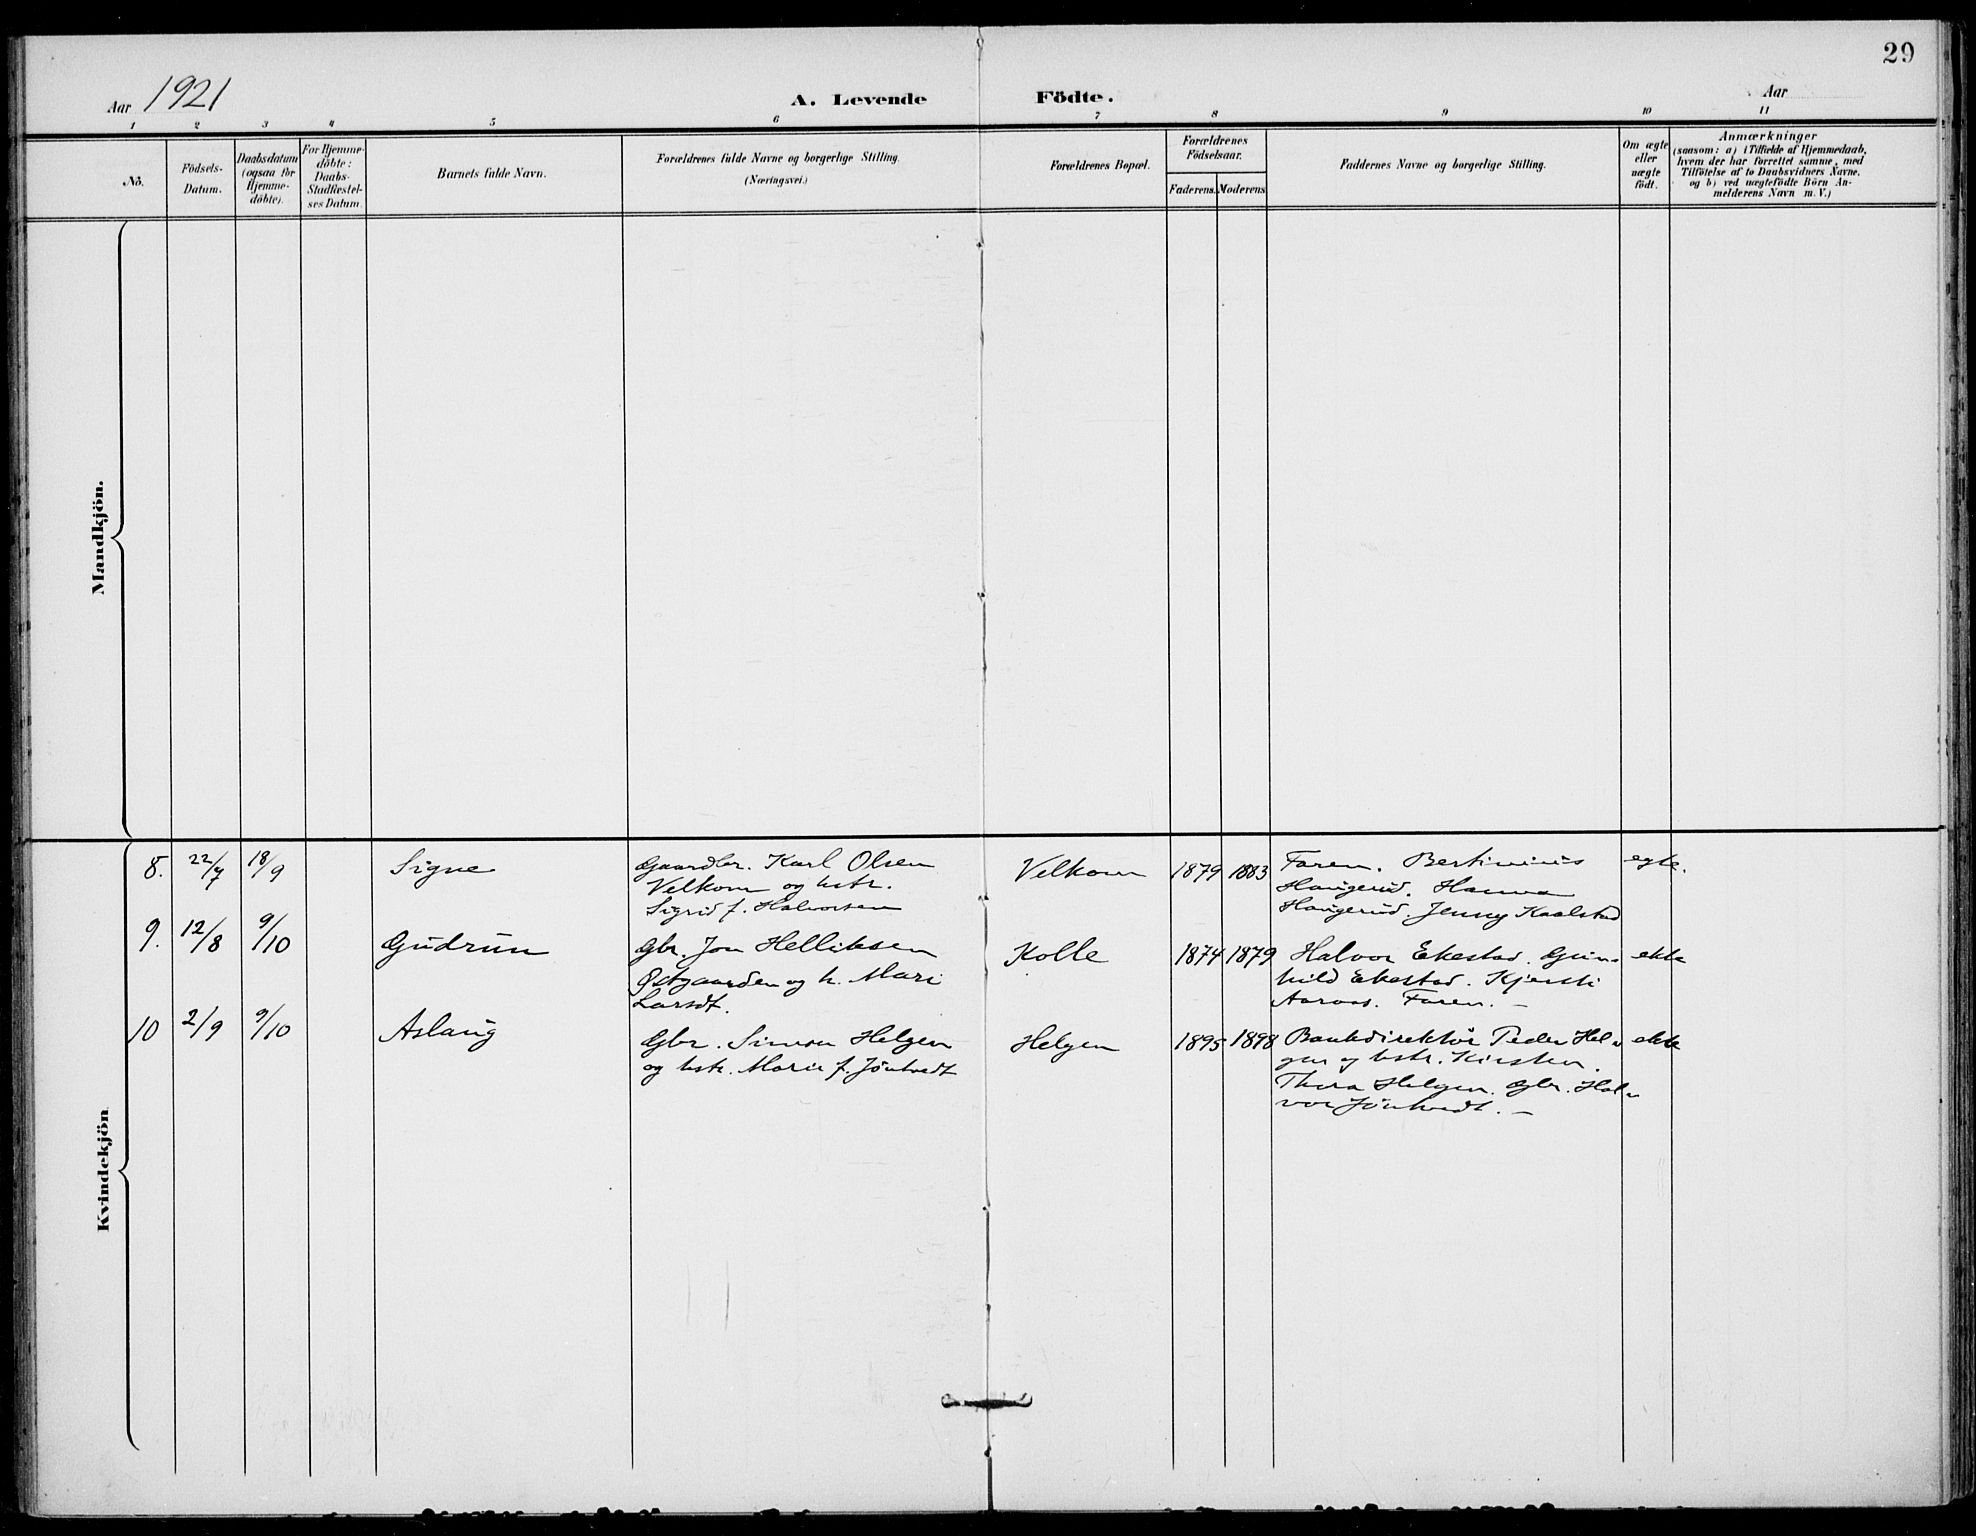 29
Aar 1921
A. Levende Födte.
Aar
1 2 3 4 5 6 7 8 9 10 11
No.
Födsels-
Datum.
Daabsdatum
(ogsaa for
Hjemme-
döbte).
For Hjemme-
döbte:
Daabs-
Stadfæstel-
ses Datum.
Barnets fulde Navn.
Forældrenes fulde Navne og borgerlige Stilling.
(Næringsvei.)
Forældrenes Bopæl.
Forældrenes
Födselsaar.
Faderens. Moderens.
Faddernes Navne og borgerlige Stilling.
Om ægte
eller
uægte
födt.
Anmærkninger
(saasom: a) i Tilfælde af Hjemmedaab,
hvem der har forrettet samme, med
Tilföielse af to Daabsvidners Navne,
og b) ved uægtefödte Börn An-
melderens Navn m. V.)
Mandkjön.
Kvindekjön.
8. 22/7 18/9 Signe
Gaardbr. Karl Olsen
Velkom og hstr.
Sigrid f. Halvorsen
Velkom 1879 1883
Faren. Bertinius
Haugerud. Hanna
Haugerud. Jenny Kaalstad
egte.
9. 12/8 9/10 Gudrun
Gbr. Jon Helliksen
Østgaarden og h. Mari
Larsdt.
Kolle 1874 1879
Halvor Ekestad. Gun-
hild Ekestad. Kjersti
Aaraas. Faren. –
ekte
10 2/9 9/10 Aslaug
Gbr. Simon Helgen
og hstr. Marie f. Jöntvedt
Helgen 1895 1898
Bankdirektör Peder Hel-
gen og hstr. Kirsten.
Thora Helgen. Gbr. Hal-
vor Jöntvedt. –
ekte